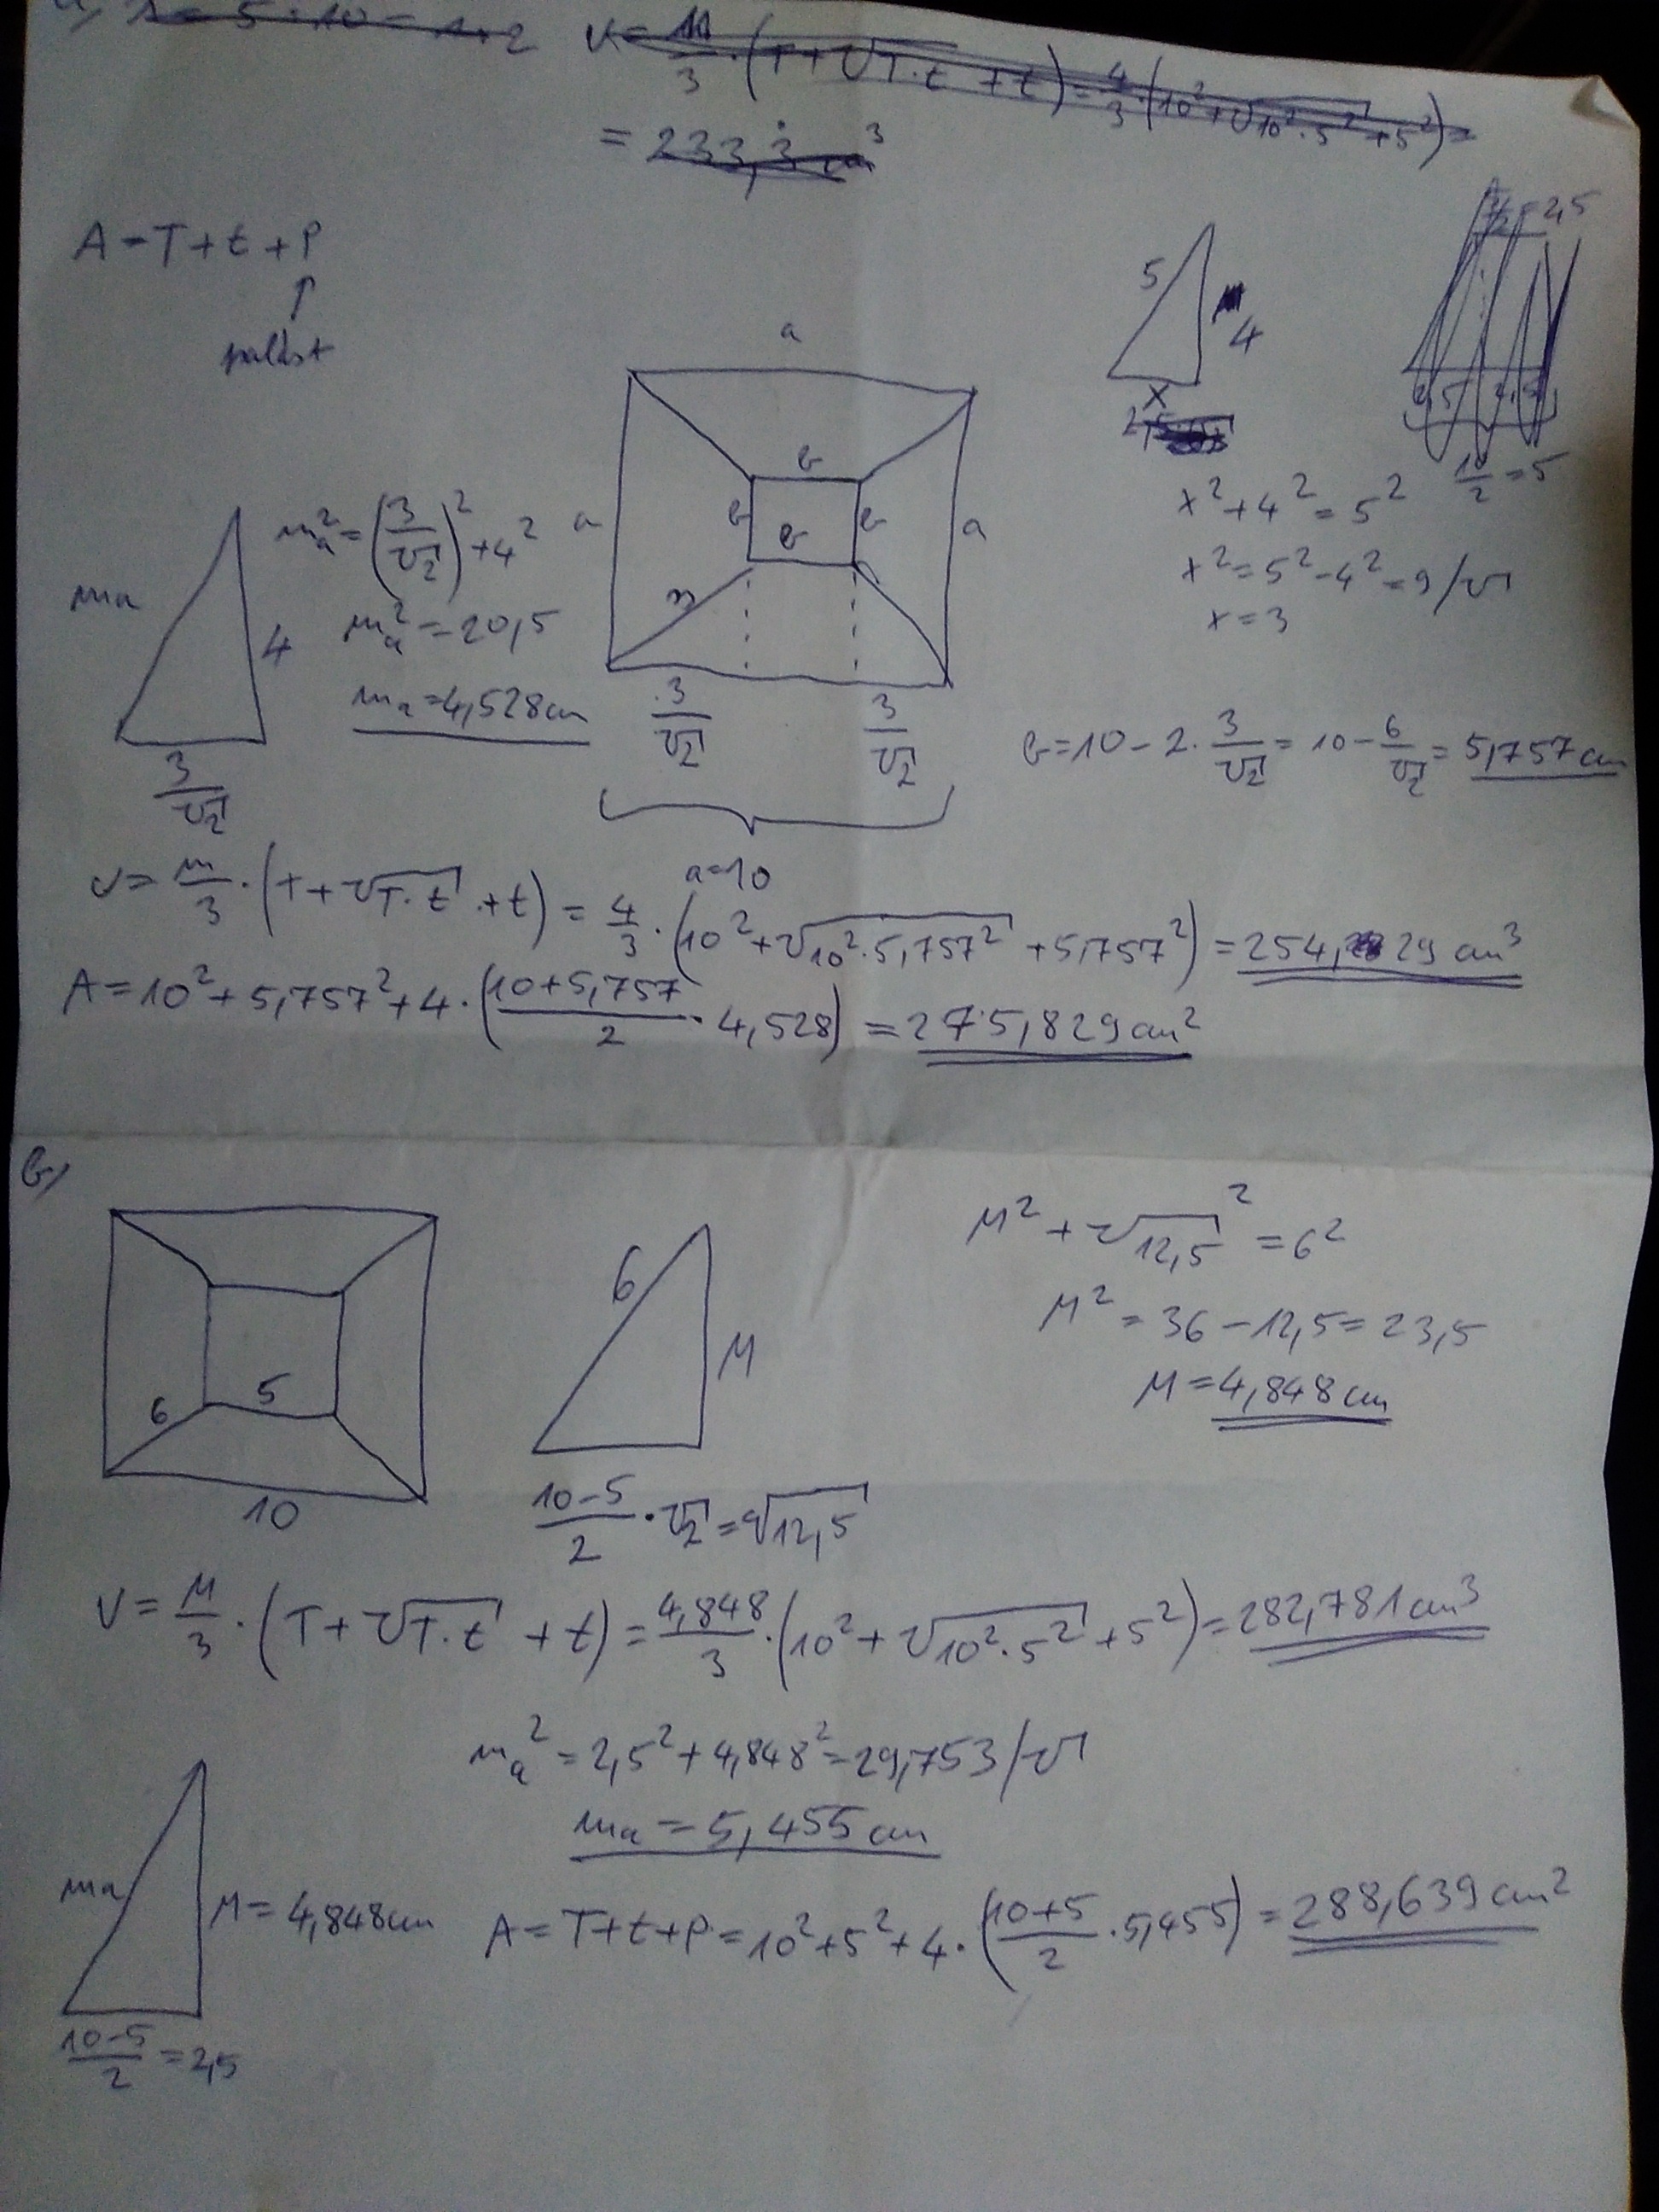 V = m/3 · (T + √T·t + t) = 4/3 · (10² + √10²·5² + 5²) =
= 233,3 cm³
A = T + t + P
↑
palást
5
4
x
x² + 4² = 5²
x² = 5² - 4² = 9 /√
x = 3
5/2 = 2,5
2,5 2,5
10/2 = 5
a
a
a
b
b
b
b
3/√2
3/√2
a=10
ma
4
3/√2
ma² = (3/√2)² + 4²
ma² = 20,5
ma = 4,528 cm
b = 10 - 2 · 3/√2 = 10 - 6/√2 = 5,757 cm
V = m/3 · (T + √T·t + t) = 4/3 · (10² + √10²·5,757² + 5,757²) = 254,29 cm³
A = 10² + 5,757² + 4 · (10+5,757/2 · 4,528) = 275,829 cm²
b,
6
5
10
6
M
10-5/2 · √2 = √12,5
M² + √12,5² = 6²
M² = 36 - 12,5 = 23,5
M = 4,848 cm
V = M/3 · (T + √T·t + t) = 4,848/3 · (10² + √10²·5² + 5²) = 282,781 cm³
ma² = 2,5² + 4,848² = 29,753 /√
ma = 5,455 cm
ma
M = 4,848 cm
10-5/2 = 2,5
A = T + t + P = 10² + 5² + 4 · (10+5/2 · 5,455) = 288,639 cm²